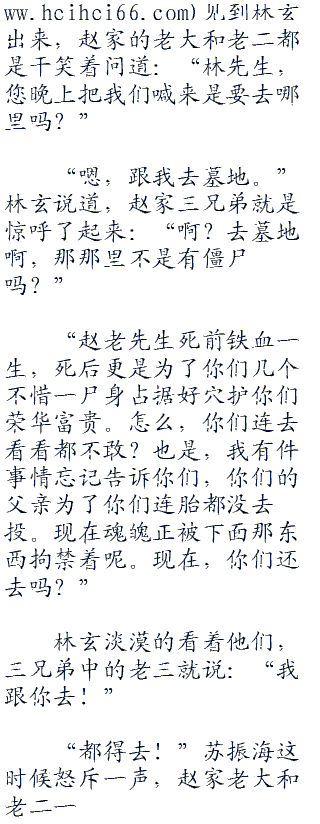 ww.hcihci66.com)见到林玄
出来，赵家的老大和老二都
是干笑着问道：“林先生，
您晚上把我们喊来是要去哪
里吗？”
“嗯，跟我去墓地。”
林玄说道，赵家三兄弟就是
惊呼了起来：“啊？去墓地
啊，那那里不是有僵尸
吗？”
“赵老先生死前铁血一
生，死后更是为了你们几个
不惜一尸身占据好穴护你们
荣华富贵。怎么，你们连去
看看都不敢？也是，我有件
事情忘记告诉你们，你们的
父亲为了你们连胎都没去
投。现在魂魄正被下面那东
西拘禁着呢。现在，你们还
去吗？”
林玄淡漠的看着他们，
三兄弟中的老三就说：“我
跟你去！”
“都得去！”苏振海这
时候怒斥一声，赵家老大和
老二一